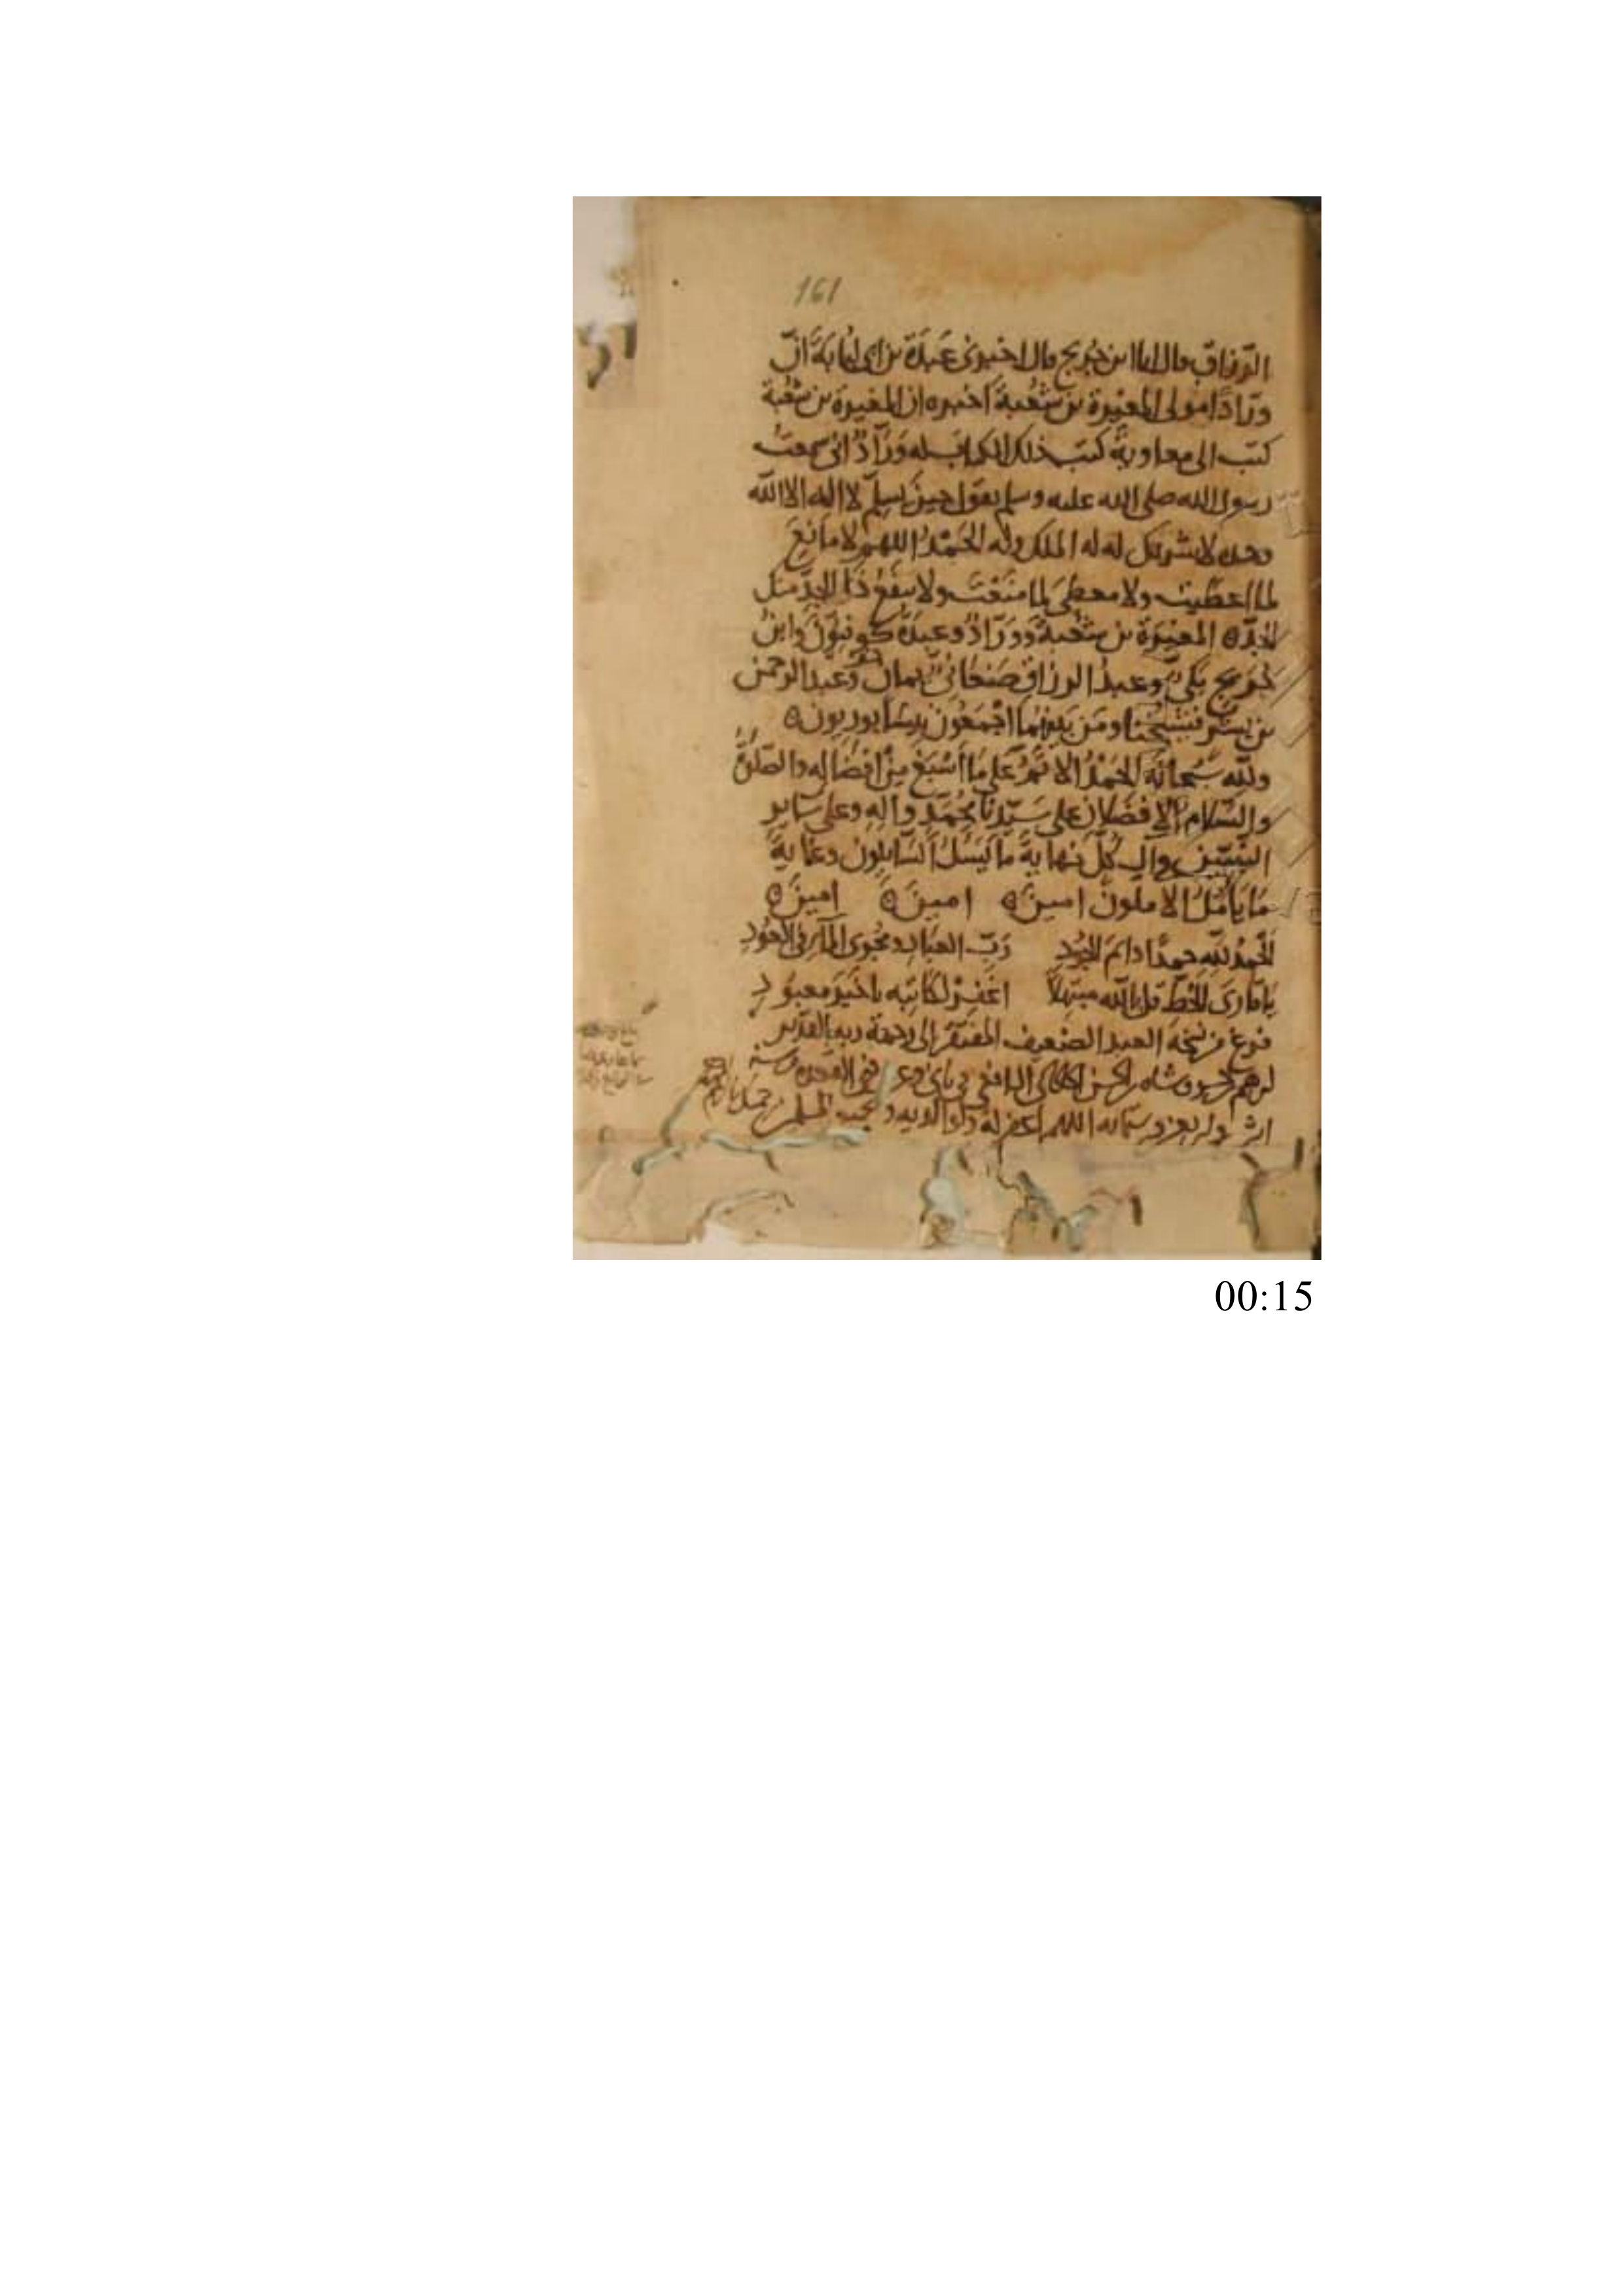 161
الرزاق قال انا ابن جريج قال اخبرني عَبدَة بن ابي لُبابَةَ انّ
ورّادًا مولى المغيرة بن شعبة اخبره ان المغيرة بن شعبة
كتب الى معاوية كتب ذلك الكتاب له ورّادٌ اني سمعت
رسول الله صلى الله عليه وسلم يقول حين يسلم لا اله الا الله
وحده لا شريك له له الملك وله الحمدُ اللهم لا مانع
لما اعطيت ولا معطي لما منعت ولا ينفع ذا الجدّ منك
الجدّ المغيرة بن شعبة وورّادٌ وعبدة كوفيون وابنُ
جريج مكيّ وعبد الرزاق صنعاني يمان وعبد الرحمن
بن بشر فشيخنا ومن بينهما اجمعون نيسابوريون
ولله سبحانه الحمدُ الاتمّ على ما اسبغ من افضاله والصلوة
والسّلام الافضلان على سيّدنا محمّد وآله وعلى ساير
النبيين وآل كلّ نهاية ما يسل السّايلون وغاية
ما يأملُ الاملون امين امين امين
الحمد لله حمدًا دايم الجود ربّ العباد ومجري المآء في العود
يا قارئ الخطّ قل بالله مبتهلاً اغفر لكاتبه يا خير معبود
فرغ من نسخه العبد الضعيف المفتقر الى رحمة ربه القدير
الشافعي في ذي القعدة سنة
وستمائه اللهم اغفر له ولوالديه ولجميع المسلمين
00:15